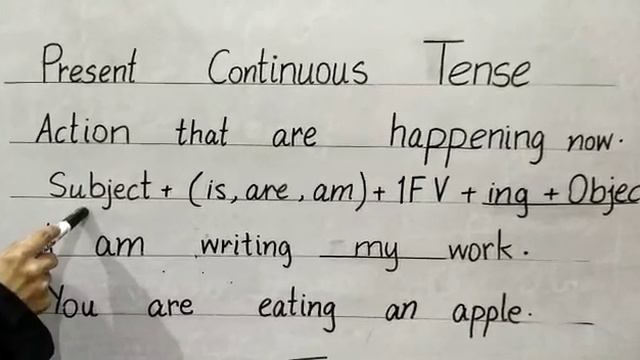 Present Continuous Tense
Action that are happening now.
Subject + (is, are, am) + 1F V + ing + Objec
am writing my work.
You are eating an apple.